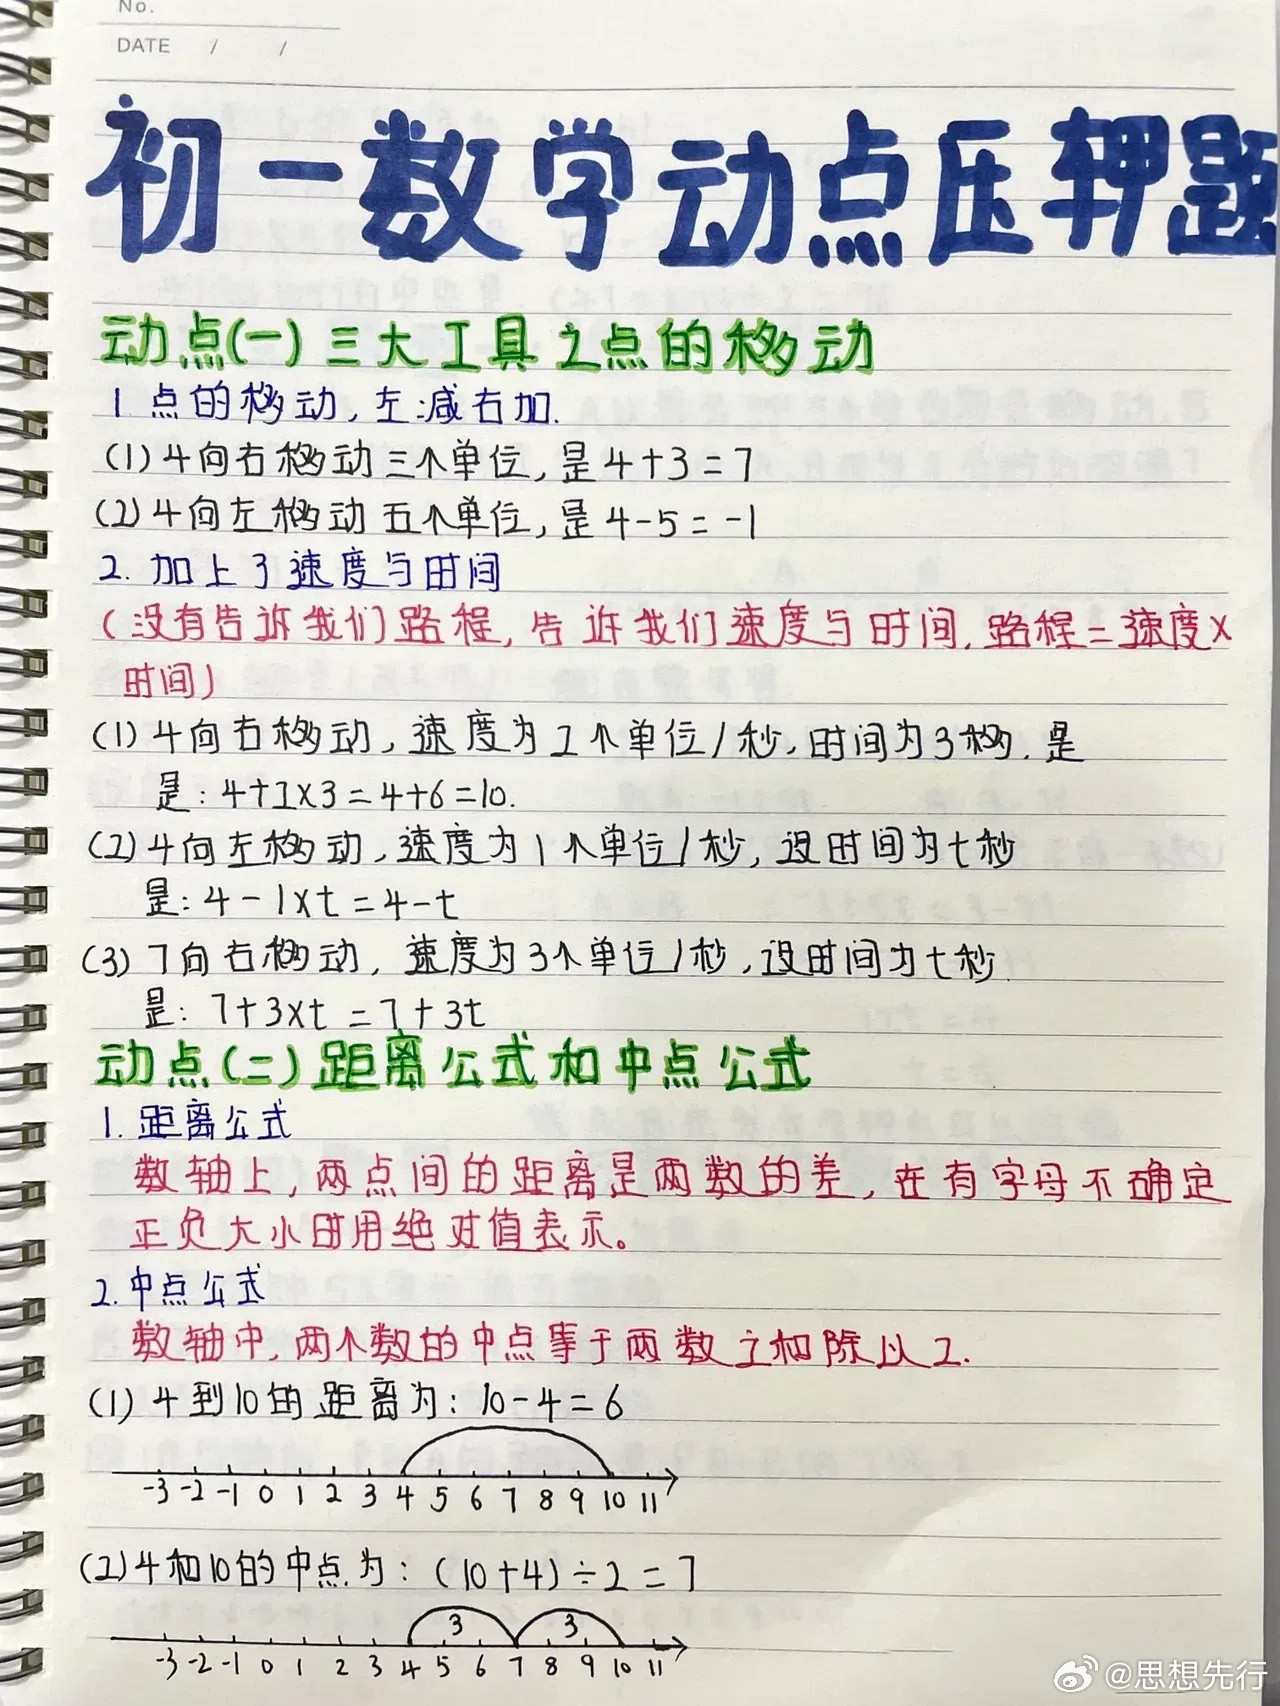 No.
DATE / /
初一数学动点压押题
动点(一)三大工具之点的移动
1.点的移动,左减右加.
(1)4向右移动三个单位,是4+3=7
(2)4向左移动五个单位,是4-5=-1
2.加上了速度与时间
(没有告诉我们路程,告诉我们速度与时间.路程=速度×
时间)
(1)4向右移动,速度为2个单位/秒,时间为3秒.是
是:4+2×3=4+6=10.
(2)4向左移动,速度为1个单位/秒,设时间为t秒
是:4-1×t=4-t
(3)7向右移动,速度为3个单位/秒,设时间为t秒
是:7+3×t=7+3t
动点(二)距离公式和中点公式
1.距离公式
数轴上,两点间的距离是两数的差,在有字母不确定
正负大小时用绝对值表示。
2.中点公式
数轴中,两个数的中点等于两数之和除以2.
(1)4到10的距离为:10-4=6
-3 -2 -1 0 1 2 3 4 5 6 7 8 9 10 11
(2)4和10的中点为:(10+4)÷2=7
3 3
-3 -2 -1 0 1 2 3 4 5 6 7 8 9 10 11
@思想先行